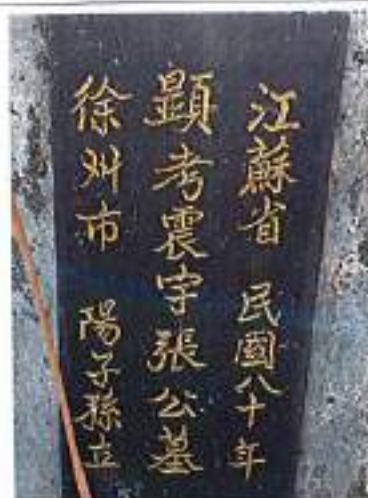 江蘇省 民國八十年
顯考震宇張公墓
徐州市 陽子孫立